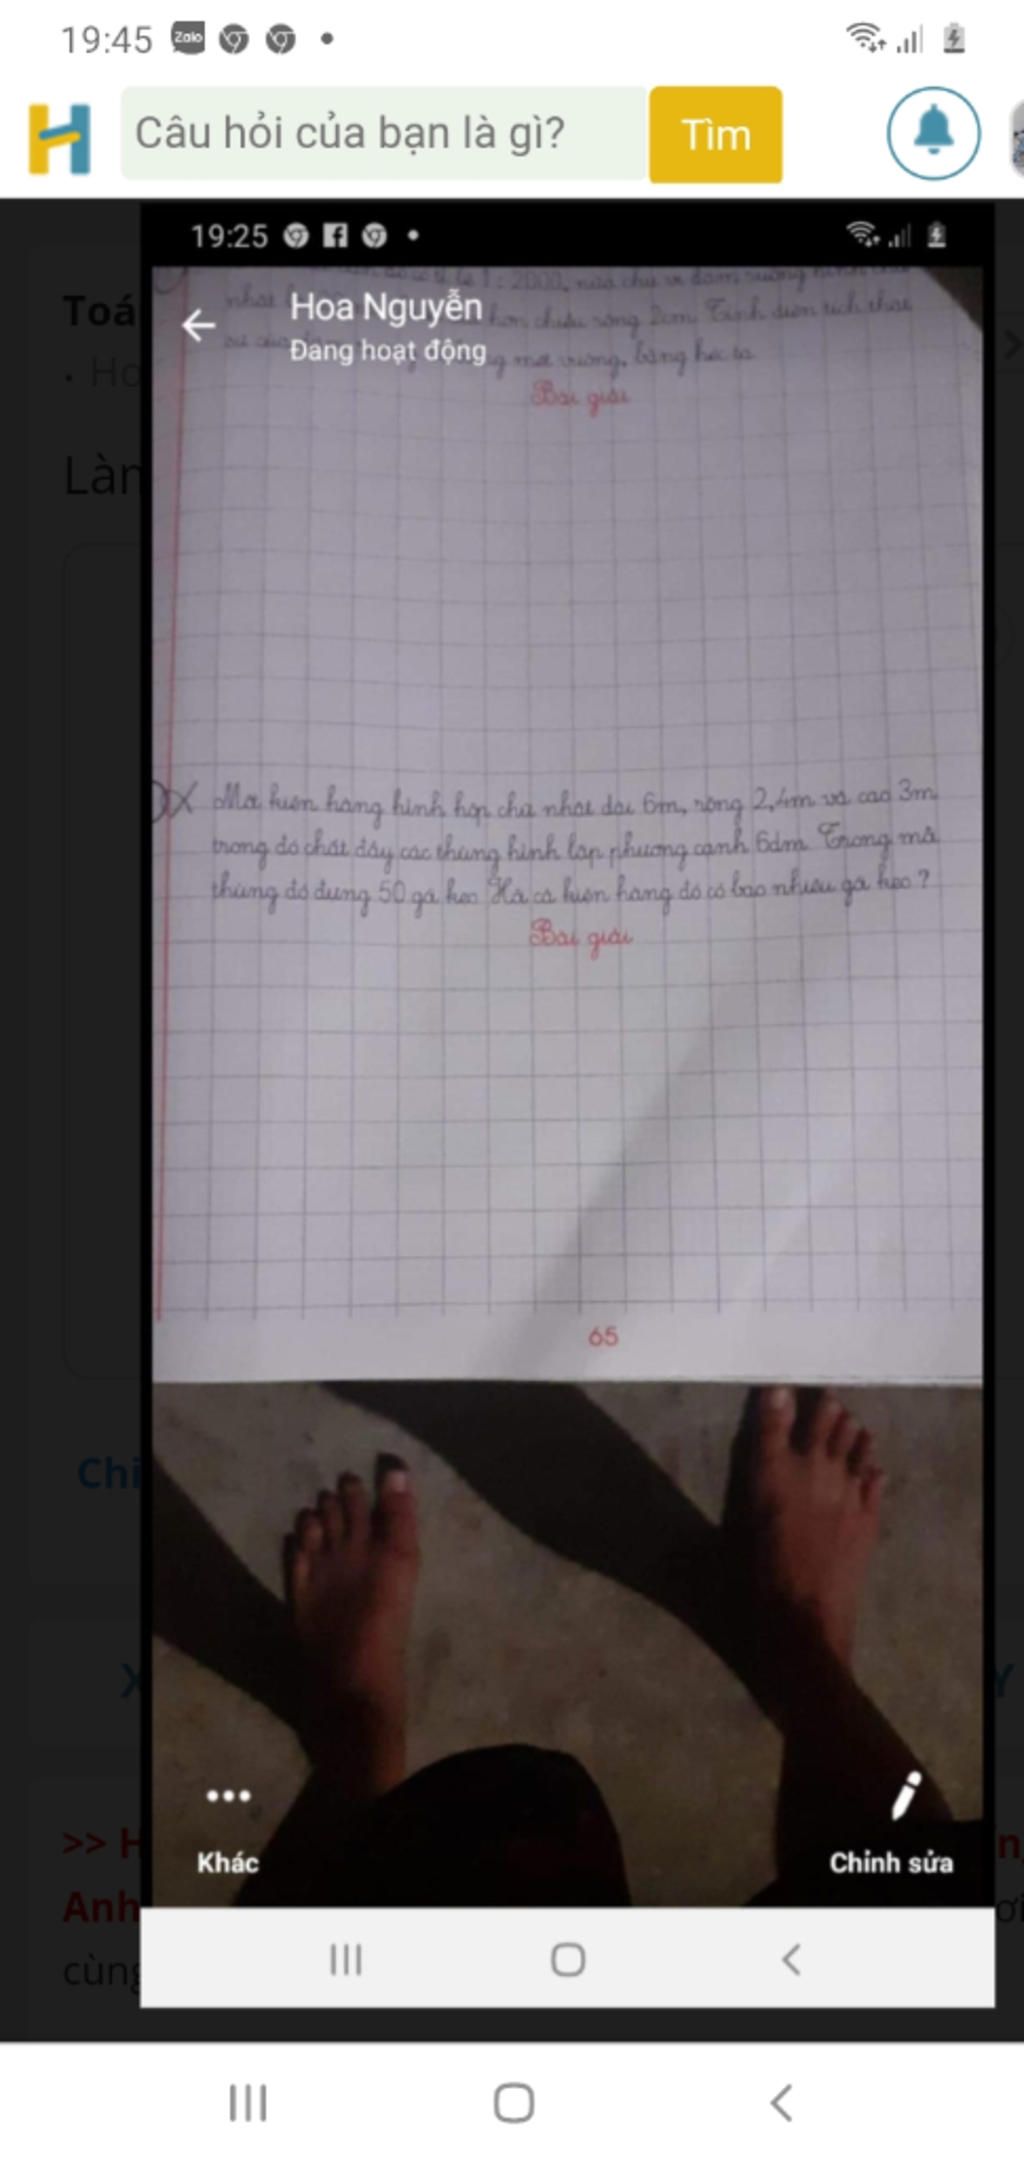 19:45 Zalo
Câu hỏi của bạn là gì? Tìm
19:25
Toá
Ho
Làn
Hoa Nguyễn
Đang hoạt động
1 : 2000, nửa chu vi đám ruộng hình chữ
nhật hơn chiều rộng 2cm. Tính diện tích thật
mét vuông, bằng héc ta.
Bài giải
Một kiện hàng hình hộp chữ nhật dài 6m, rộng 2,4m và cao 3m,
trong đó chất đầy các thùng hình lập phương cạnh 6dm. Trong mỗi
thùng đó đựng 50 gói kẹo. Hỏi cả kiện hàng đó có bao nhiêu gói kẹo ?
Bài giải
65
Chi
X
Y
>> H
Anh
cùng
Khác
Chỉnh sửa